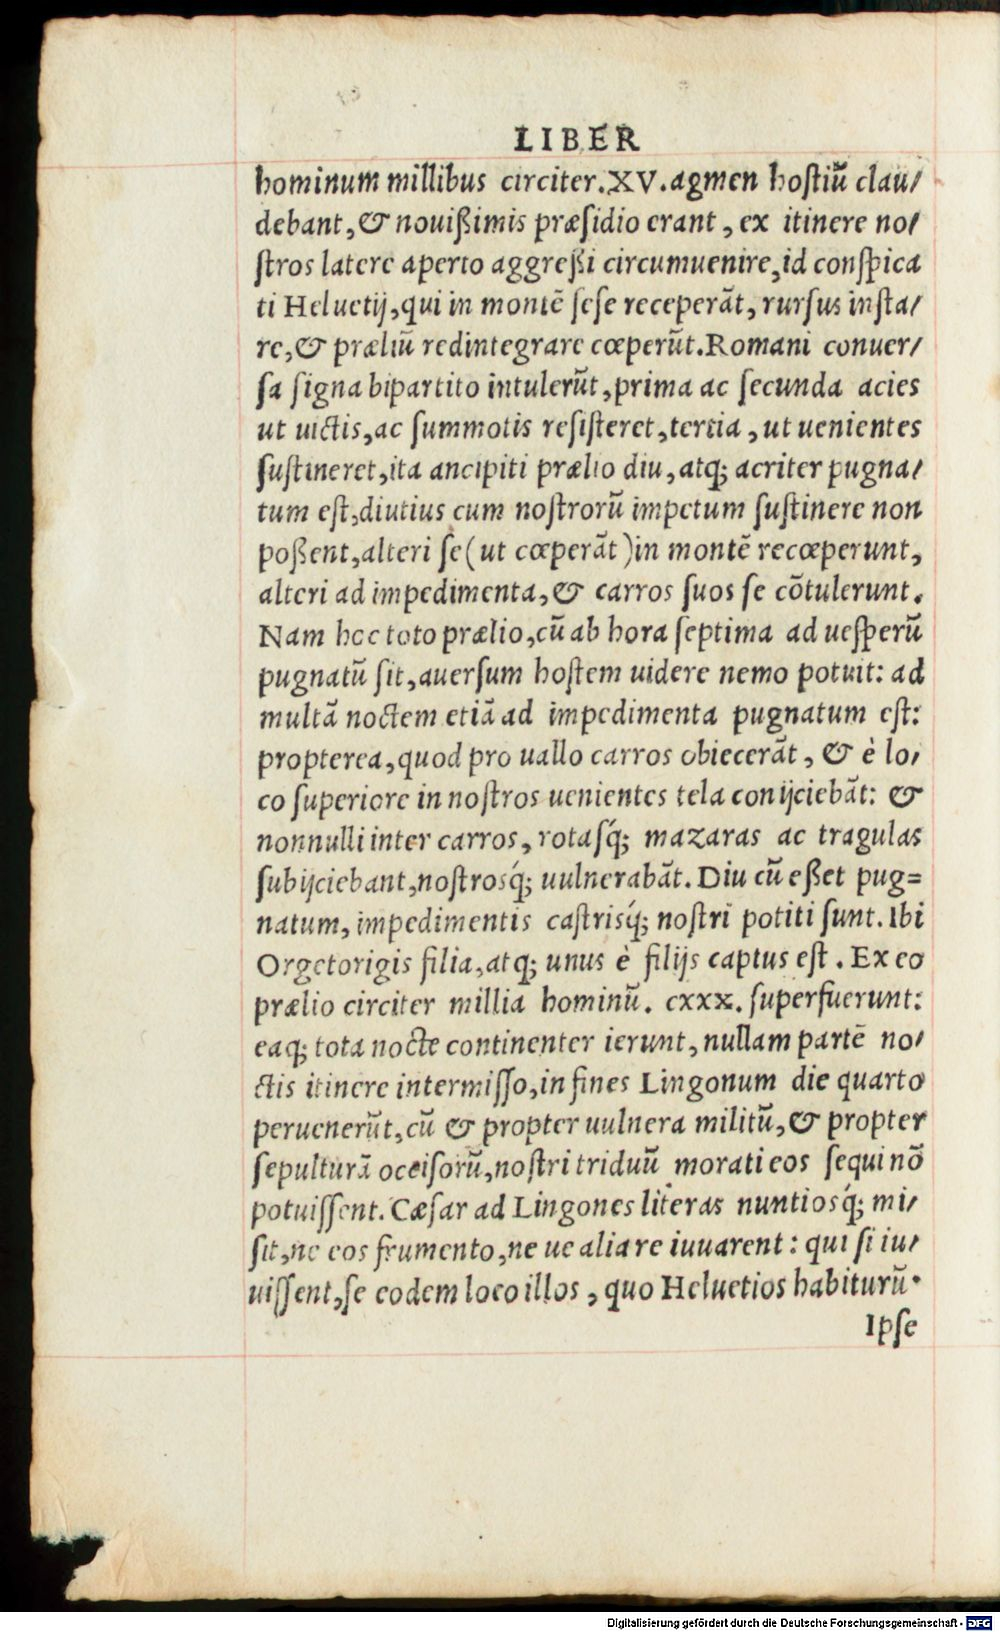 LIBER
hominum millibus circiter.XV.agmen hoſtiũ clau/
debant,& nouißimis præſidio erant, ex itinere no/
ſtros latere aperto aggreßi circumuenire,id conſpica
ti Heluetij,qui in montẽ ſeſe receperãt, rurſus inſta/
re,& præliũ redintegrare cœperũt.Romani conuer/
ſa ſigna bipartito intulerũt,prima ac ſecunda acies
ut uictis,ac ſummotis reſiſteret,tertia, ut uenientes
ſuſtineret,ita ancipiti prælio diu, atq; acriter pugna/
tum eſt,diutius cum noſtrorũ impetum ſuſtinere non
poßent,alteri ſe(ut cœperãt)in montẽ recœperunt,
alteri ad impedimenta,& carros ſuos ſe cõtulerunt.
Nam hoc toto prælio,cũ ab hora ſeptima ad ueſperũ
pugnatũ ſit,auerſum hoſtem uidere nemo potuit: ad
multã noctem etiã ad impedimenta pugnatum eſt:
propterea,quod pro uallo carros obiecerãt, & è lo/
co ſuperiore in noſtros uenientes tela conijciebãt: &
nonnulli inter carros, rotasq́; mazaras ac tragulas
ſubijciebant,noſtrosq́; uulnerabãt. Diu cũ eßet pug=
natum, impedimentis caſtrisq́; noſtri potiti ſunt. Ibi
Orgetorigis filia,atq; unus è filijs captus eſt. Ex eo
prælio circiter millia hominũ. cxxx. ſuperfuerunt:
eaq; tota nocte continenter ierunt, nullam partẽ no/
ctis itinere intermiſſo,in fines Lingonum die quarto
peruenerũt,cũ & propter uulnera militũ,& propter
ſepulturã occiſorũ,noſtri triduũ morati eos ſequi nõ
potuiſſent. Cæſar ad Lingones literas nuntiosq́; mi/
ſit,ne eos frumento,ne ue alia re iuuarent: qui ſi iu/
uiſſent,ſe eodem loco illos, quo Heluetios habiturũ.
Ipſe
Digitalisierung gefördert durch die Deutsche Forschungsgemeinschaft - DFG